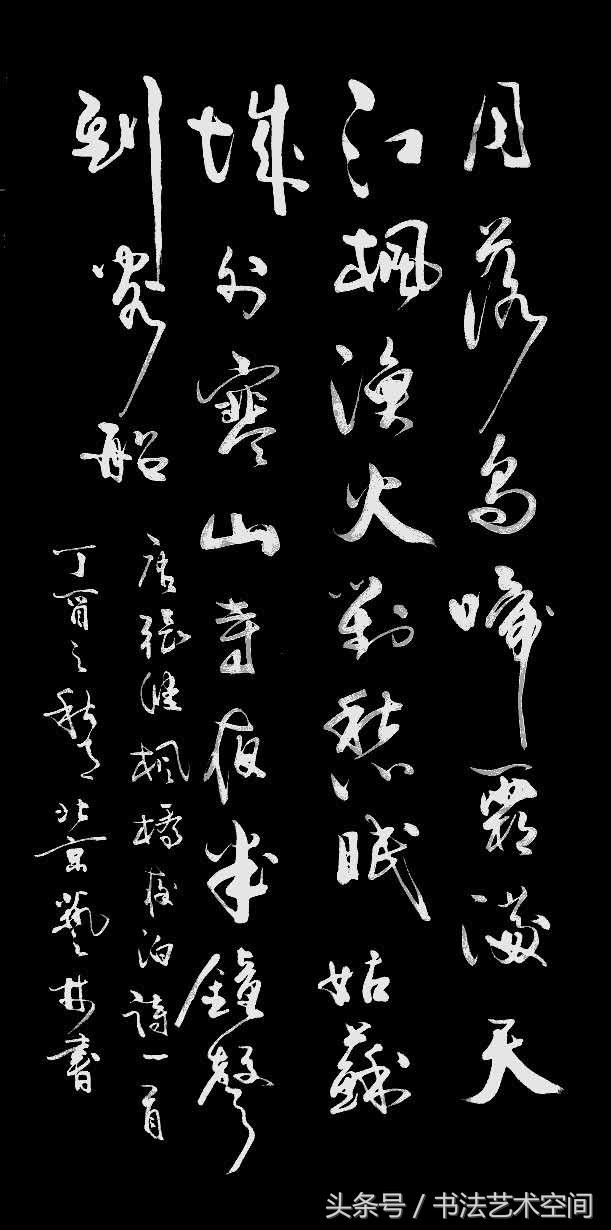 月落烏啼霜满天
江楓漁火對愁眠姑蘇
城外寒山寺夜半鐘聲
到客船
唐張继楓橋夜泊詩一首
丁酉之秋月北京藝林書
头条号 / 书法艺术空间